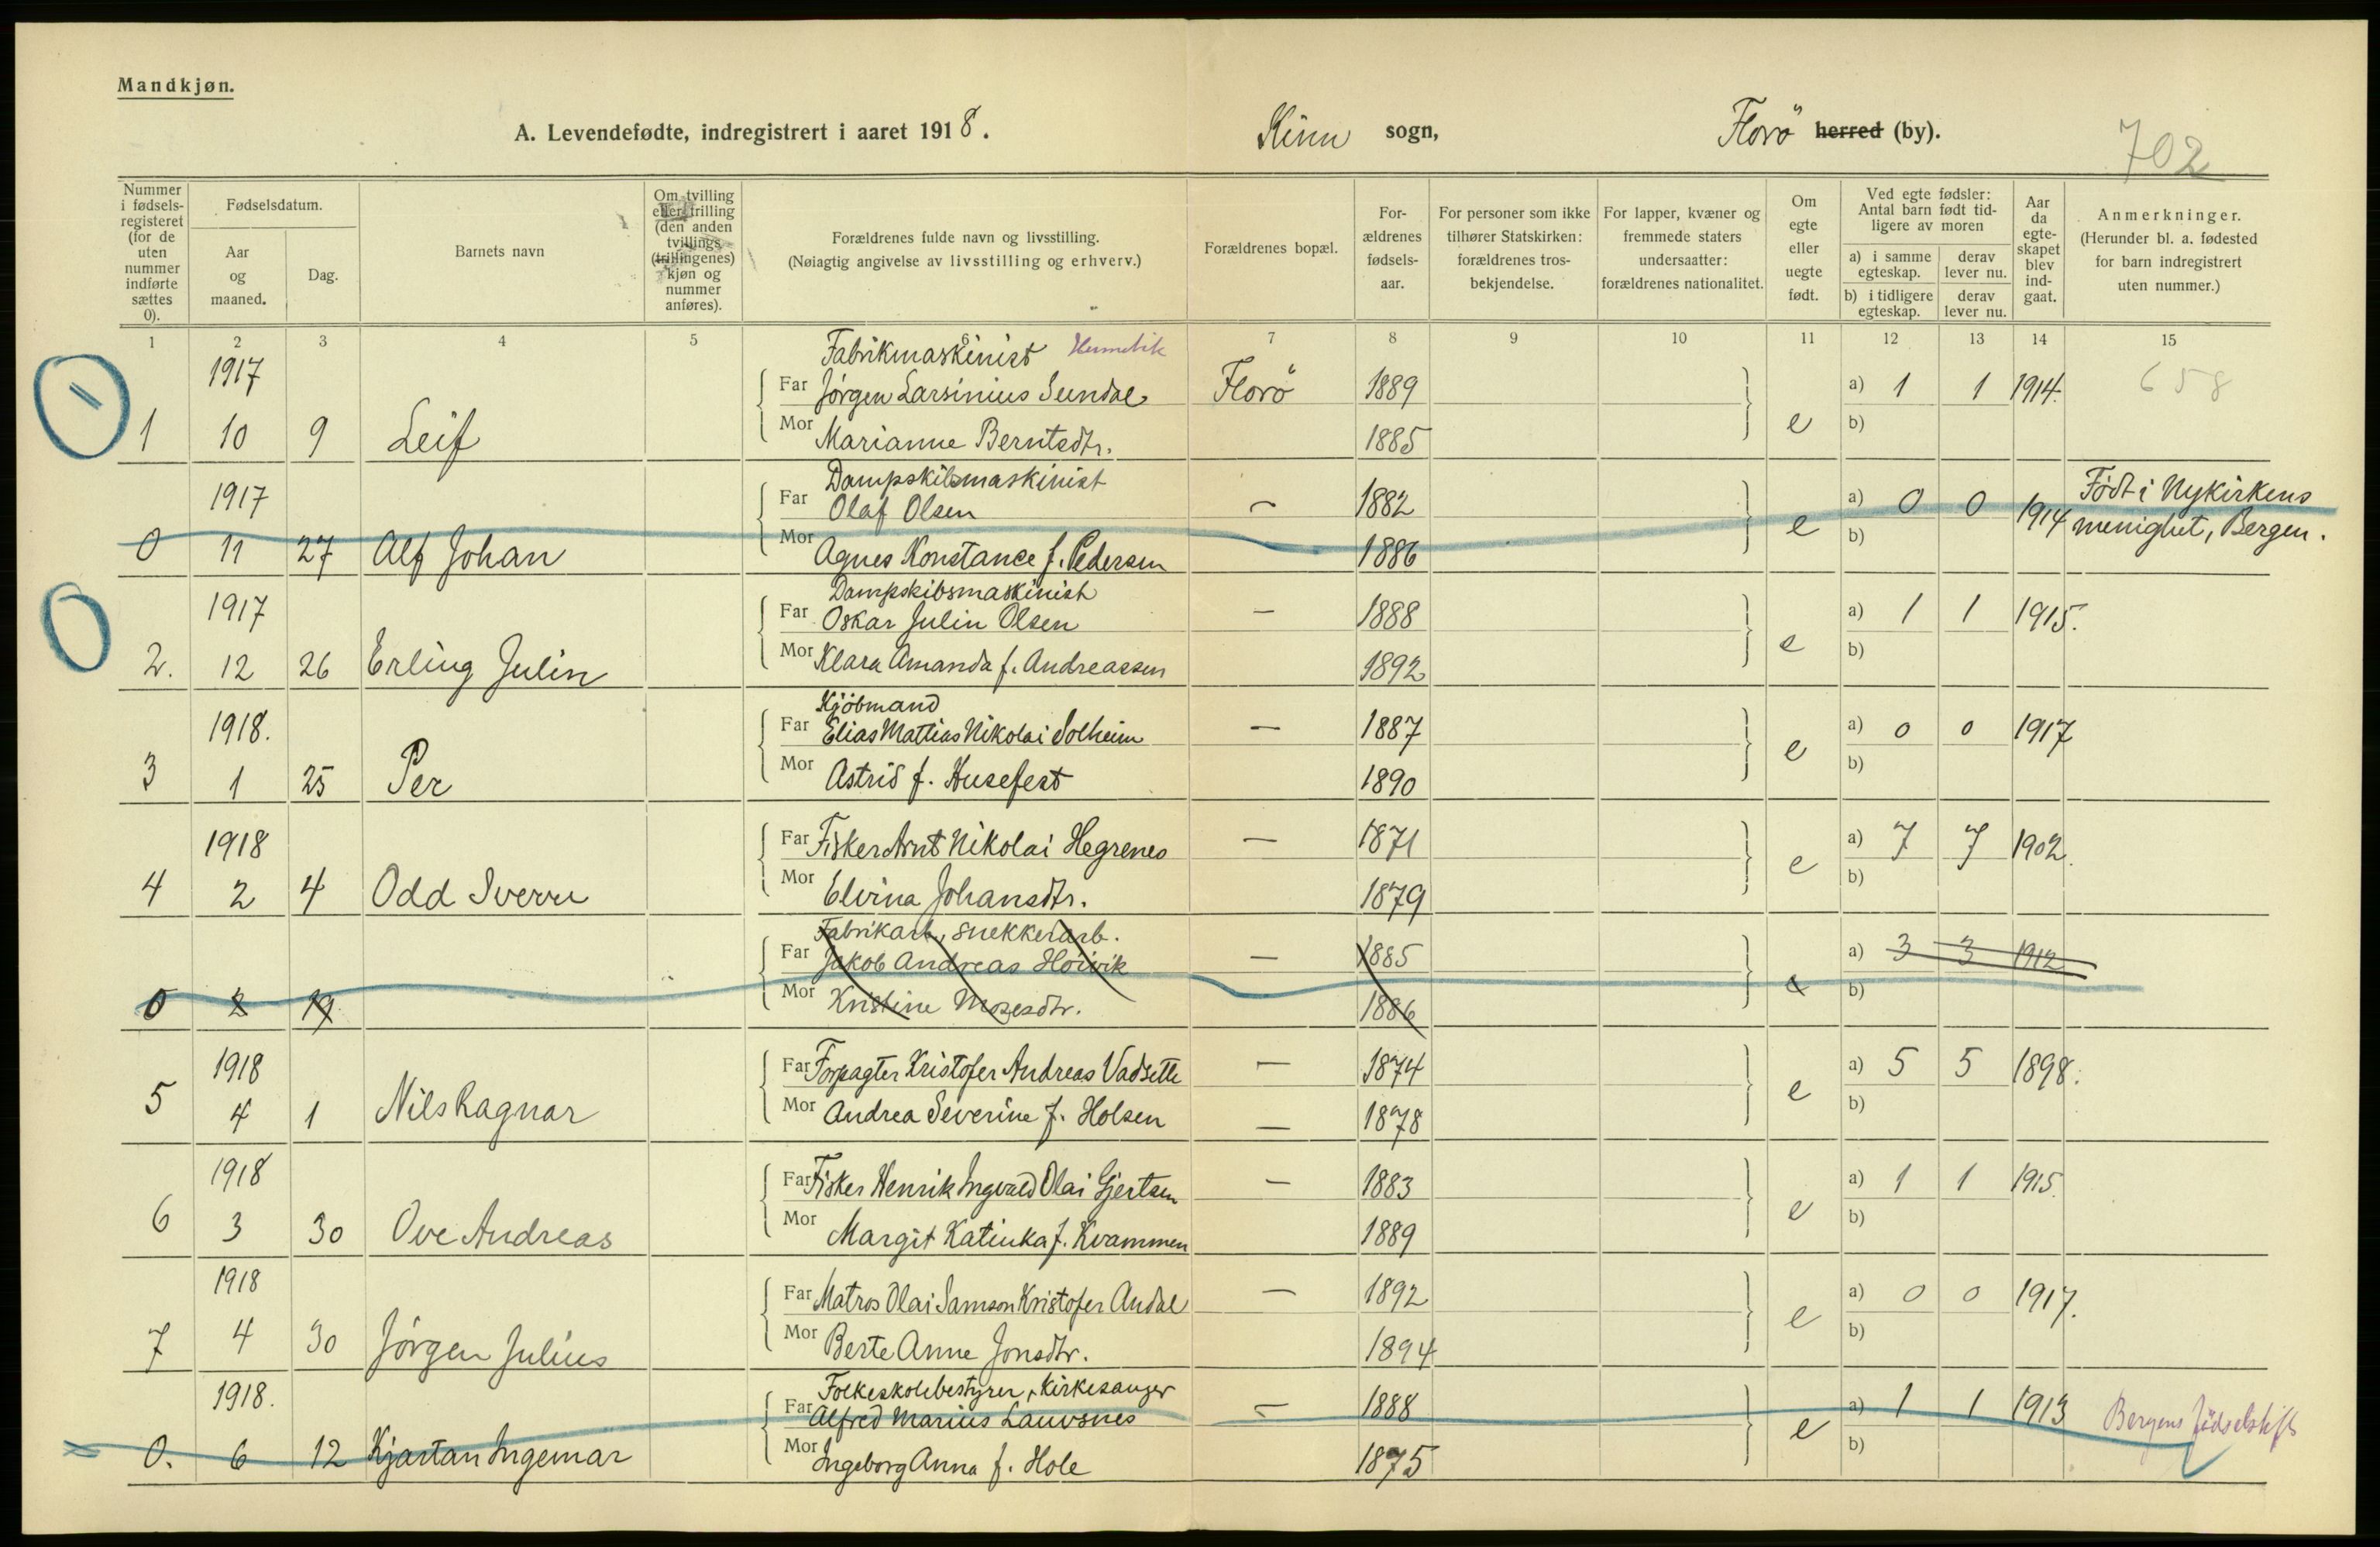 Mandkjøn.
A. Levendefødte, indregistrert i aaret 1918. Kinn sogn, Florö herred (by).
702
Nummer i fødsels-registeret (for de uten nummer indførte sættes 0).
Fødselsdatum.
Aar og maaned.
Dag.
Barnets navn
Om tvilling eller trilling (den anden tvillings (trillingenes) kjøn og nummer anføres).
Forældrenes fulde navn og livsstilling.
(Nøiagtig angivelse av livsstilling og erhverv.)
Forældrenes bopæl.
For-ældrenes fødsels-aar.
For personer som ikke tilhører Statskirken: forældrenes tros-bekjendelse.
For lapper, kvæner og fremmede staters undersaatter: forældrenes nationalitet.
Om egte eller uegte født.
Ved egte fødsler: Antal barn født tid-ligere av moren
a) i samme egteskap. derav lever nu.
b) i tidligere egteskap. derav lever nu.
Aar da egte-skapet blev ind-gaat.
Anmerkninger.
(Herunder bl. a. fødested for barn indregistrert uten nummer.)
1 2 3 4 5 6 7 8 9 10 11 12 13 14 15
1917 Fabrikmaskinist Hermetik
Far Jörgen Larsinius Sundal Florö 1889 a) 1 1 1914. 658
1 10 9 Leif Mor Marianne Berntsdtr. 1885 e b)
1917 Dampskibsmaskinist
Far Olaf Olsen — 1882 a) 0 0 1914 Födt i Nykirkens
0 11 27 Alf Johan Mor Agnes Konstance f. Pedersen 1886 e b) menighet, Bergen.
1917 Dampskibsmaskinist
Far Oskar Julin Olsen — 1888 a) 1 1 1915.
2. 12 26 Erling Julin Mor Klara Amanda f. Andreassen 1892 e b)
1918. Kjöbmand
Far Elias Mattias Nikolai Solheim — 1887 a) 0 0 1917
3 1 25 Per Mor Astrid f. Husefest 1890 e b)
1918 Far Fisker Arnt Nikolai Hegrenes — 1871 a) 7 7 1902.
4 2 4 Odd Sverre Mor Elvina Johansdtr. 1879 e b)
Fabrikarb., snekkerarb.
Far Jakob Andreas Höivik — 1885 a) 3 3 1912
0 2 19 Mor Kristine Mosesdtr. 1886 e b)
1918 Far Forpagter Kristofer Andreas Vadsette — 1874 a) 5 5 1898.
5 4 1 Nils Ragnar Mor Andrea Severine f. Holsen — 1878 e b)
1918 Far Fisker Henrik Ingvald Olai Gjertsen — 1883 a) 1 1 1915.
6 3 30 Ove Andreas Mor Margit Katinka f. Kvammen 1889 e b)
1918 Far Matros Olai Samson Kristofer Andal — 1892 a) 0 0 1917.
7 4 30 Jörgen Julius Mor Berte Anne Jonsdtr. 1894 e b)
1918. Folkeskolebestyrer, kirkesanger
Far Alfred Marius Lauvsnes — 1888 a) 1 1 1913 Bergens födselstift
0. 6 12 Kjartan Ingemar Mor Ingeborg Anna f. Hole 1875 e b)